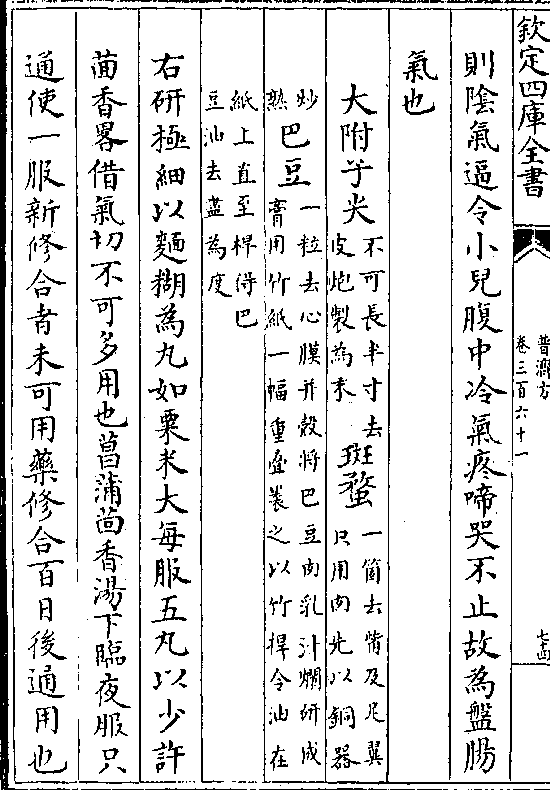 欽定四庫全書
普濟方
卷三百六十一
七四
則陰氣逼令小兒腹中冷氣疼啼哭不止故為盤腸
氣也
大附子尖不可長半寸去
皮炮製為末斑蝥一箇去觜及足翼
只用肉先以銅器
炒
熟巴豆一粒去心膜并殼將巴豆肉乳汁爛研成
膏用竹紙一幅重疊裝之以竹捍令油在
紙上直至桿得巴
豆油去盡為度
右研極細以麵糊為丸如粟米大每服五丸以少許
茴香畧借氣切不可多用也菖蒲茴香湯下臨夜服只
通使一服新修合者未可用藥修合百日後通用也